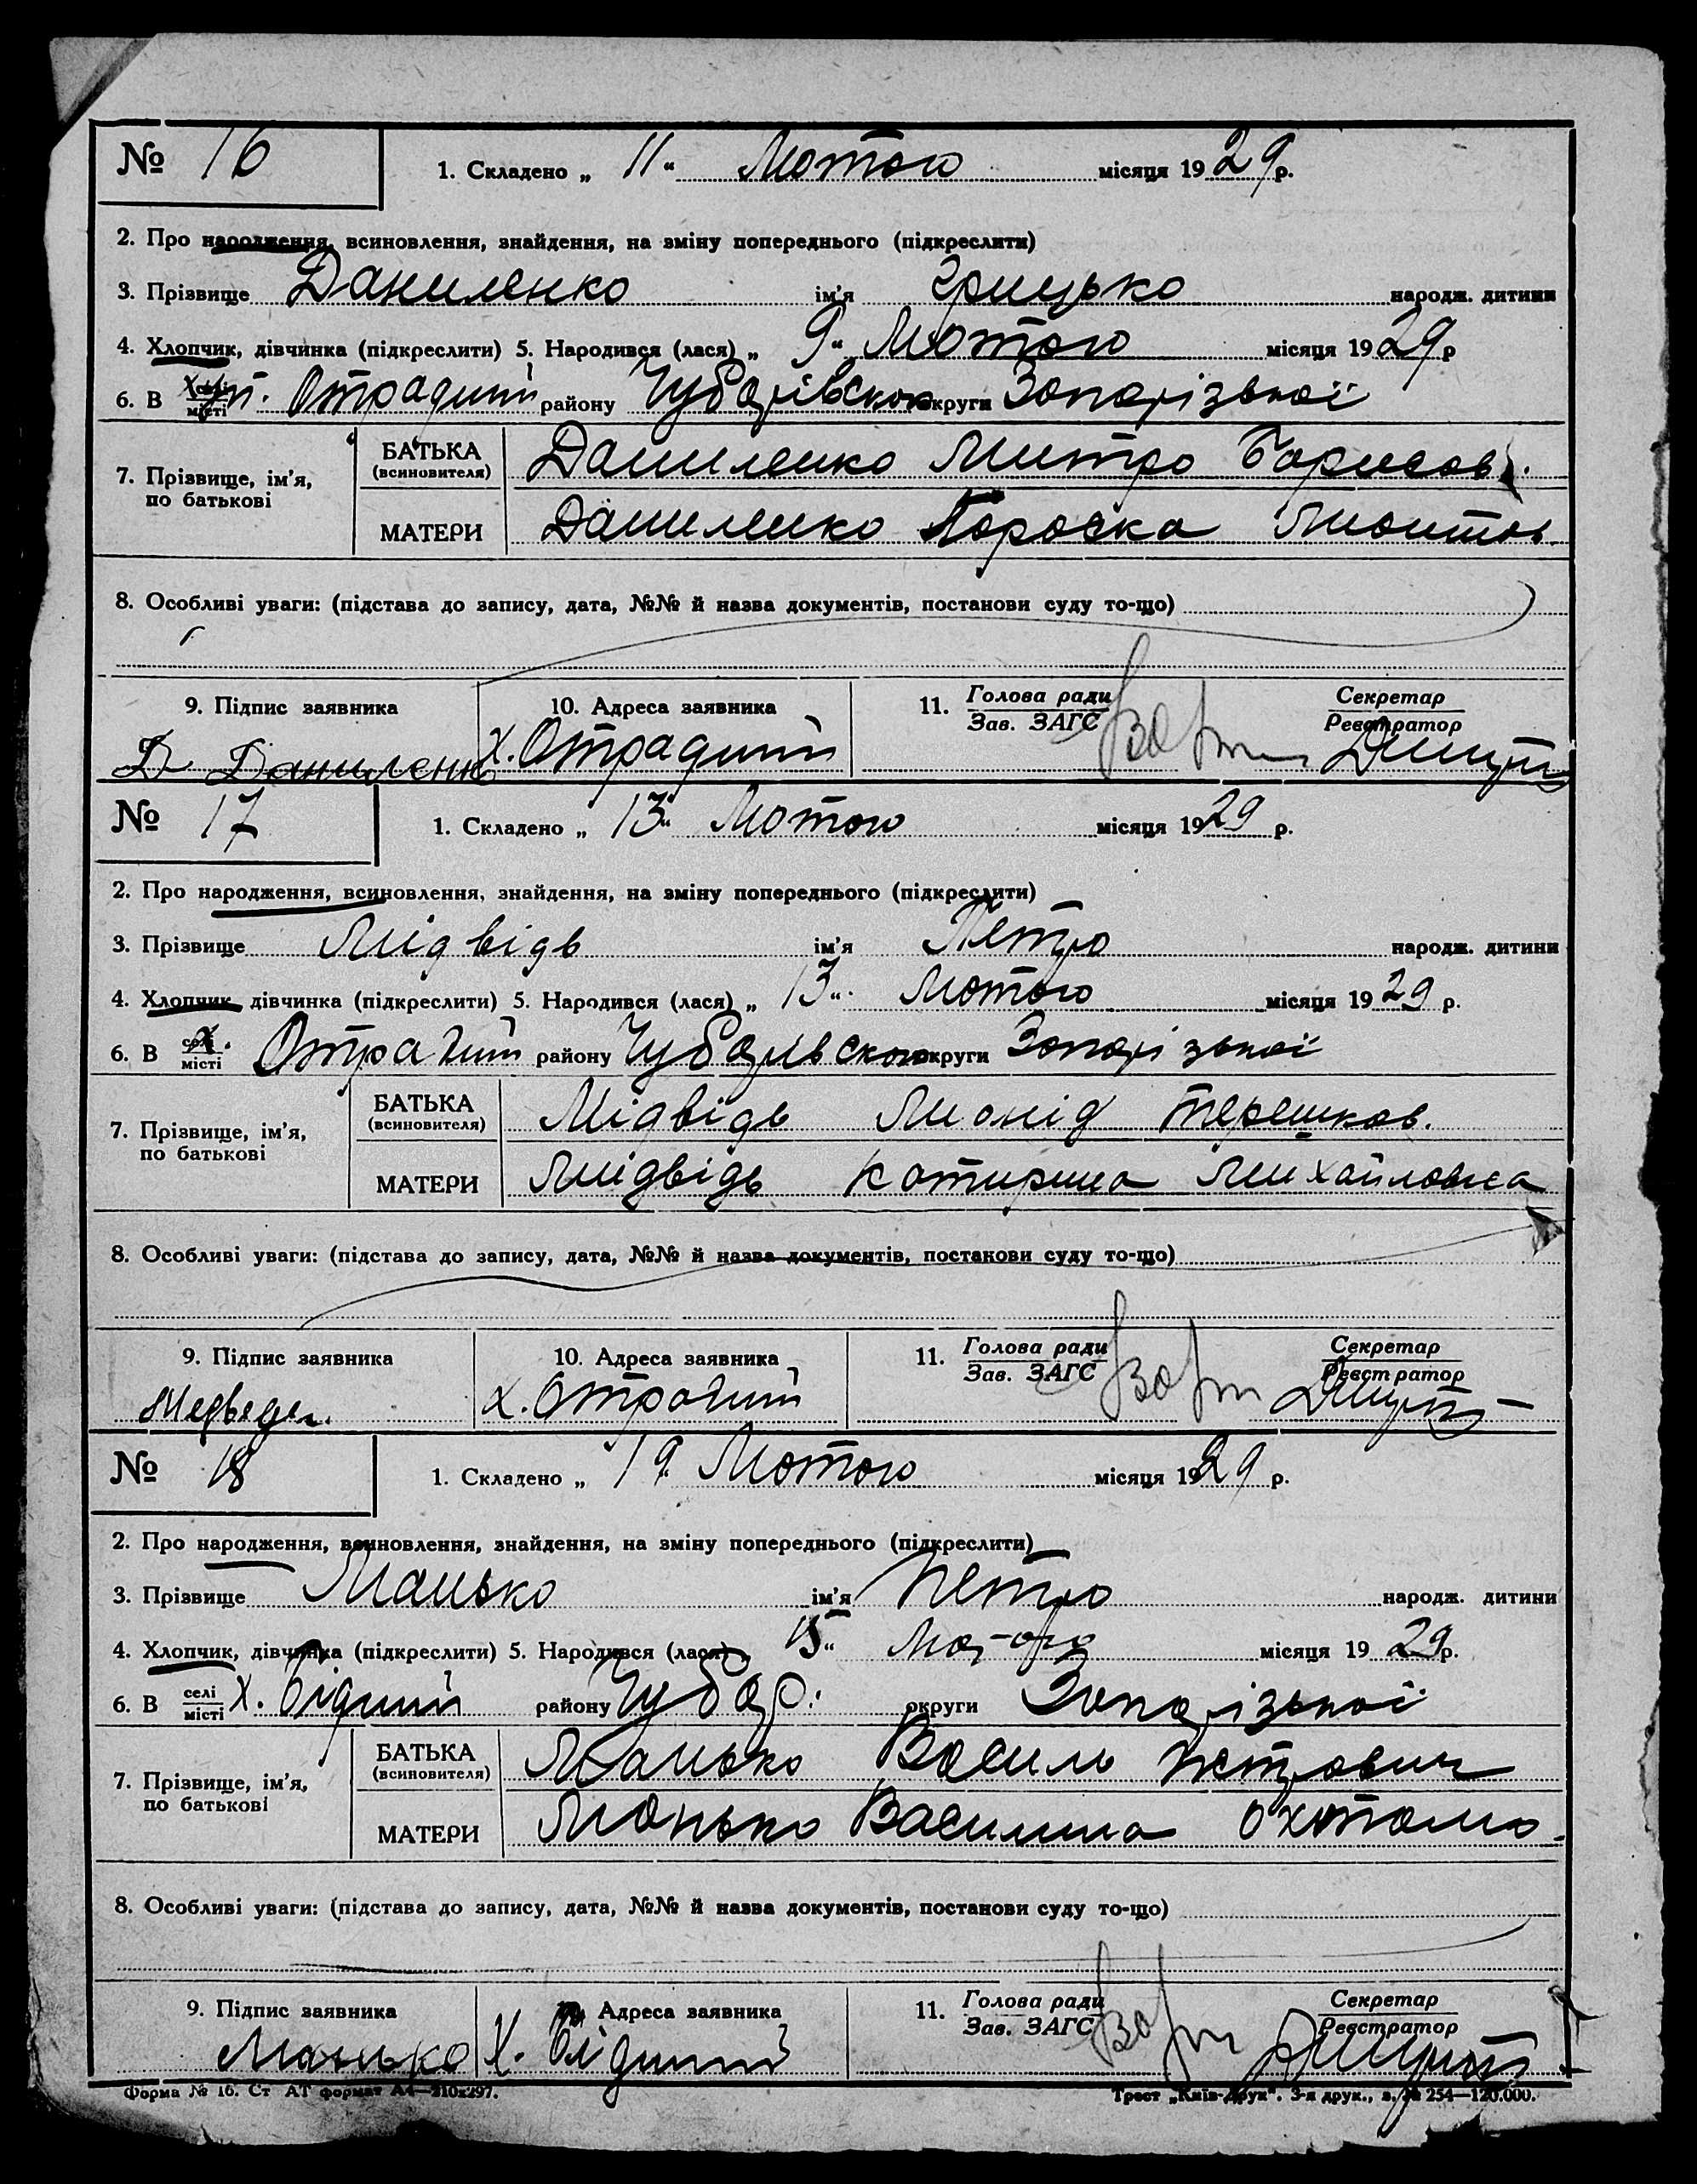 № 16 1. Складено „ 11 “ Лютого місяця 1929 р.
2. Про народження, всиновлення, знайдення, на зміну попереднього (підкреслити)
3. Прізвище Даниленко ім'я Грицько народж. дитини
4. Хлопчик, дівчинка (підкреслити) 5. Народився (лася) „ 9 “ Лютого місяця 1929 р
6. В селі місті хут. Отрадний району Чубарівского округи Запорізької
7. Прізвище, ім'я, по батькові
БАТЬКА (всиновителя) Даниленко Митро Борисов.
МАТЕРИ Даниленко Пароска
8. Особливі уваги: (підстава до запису, дата, №№ й назва документів, постанови суду то-що)
9. Підпис заявника 10. Адреса заявника 11. Голова ради Зав. ЗАГС Секретар Реєстратор
Д Даниленко х. Отрадний
№ 17 1. Складено „ 13 “ Лютого місяця 1929 р.
2. Про народження, всиновлення, знайдення, на зміну попереднього (підкреслити)
3. Прізвище Мідвідь ім'я Петро народж. дитини
4. Хлопчик, дівчинка (підкреслити) 5. Народився (лася) „ 13 “ Лютого місяця 1929 р.
6. В селі місті х. Отрадний району Чубарівского округи Запорізької
7. Прізвище, ім'я, по батькові
БАТЬКА (всиновителя) Мідвідь Лионід Терешков.
МАТЕРИ Мідвідь Катирина Михайловна
8. Особливі уваги: (підстава до запису, дата, №№ й назва документів, постанови суду то-що)
9. Підпис заявника 10. Адреса заявника 11. Голова ради Зав. ЗАГС Секретар Реєстратор
Медведь х. Отрадний
№ 18 1. Складено „ 19 “ Лютого місяця 1929 р.
2. Про народження, всиновлення, знайдення, на зміну попереднього (підкреслити)
3. Прізвище Манько ім'я Петро народж. дитини
4. Хлопчик, дівчинка (підкреслити) 5. Народився (лася) „ 15 “ Лютого місяця 1929 р.
6. В селі місті х. Бідний району Чубар. округи Запорізької
7. Прізвище, ім'я, по батькові
БАТЬКА (всиновителя) Манько Василь Петрович
МАТЕРИ Манько Василина
8. Особливі уваги: (підстава до запису, дата, №№ й назва документів, постанови суду то-що)
9. Підпис заявника 10. Адреса заявника 11. Голова ради Зав. ЗАГС Секретар Реєстратор
Манько х. Бідний
Форма № 16. Ст АТ формат А4—210х297. Трест „Київ-Друк“. 3-я друк., з. № 254—120.000.